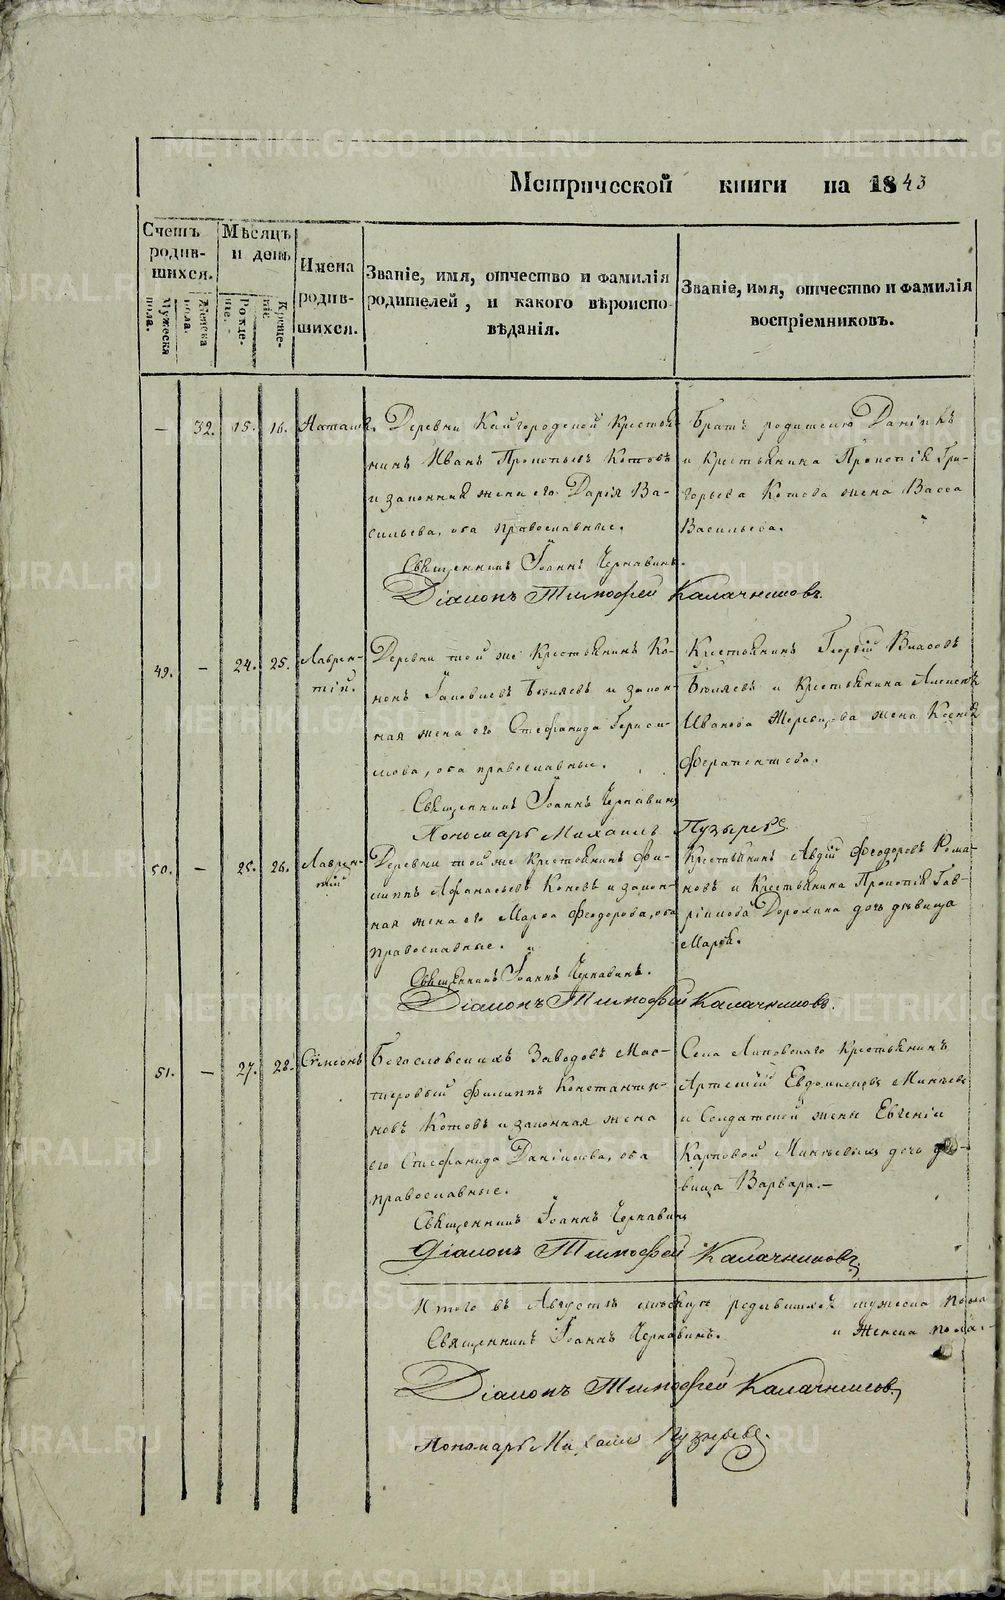 Метрической книги на 1843
Счетъ родив-шихся.
Мужеска пола.
Женска пола.
Мѣсяцъ и день.
Рожде-ніе.
Креще-ніе
Имена родив-шихся.
Званіе, имя, отчество и фамилія
родителей, и какого вѣроиспо-
вѣданія.
Званіе, имя, отчество и фамилія
воспріемниковъ.
— 32. 15. 16. Наталія.
Деревни Кайгородской Крестья-
нинъ Иванъ Прокопьевъ Котовъ
и законная жена его Дарія Ва-
сильева, оба православные.
Священникъ Іоаннъ Чернавинъ.
Діаконъ Тимофей Калачниковъ.
Братъ родителю Даніилъ
и Крестьянина Прокопія Гри-
горьева Котова жена Васса
Васильева.
49. — 24. 25. Лаврен-
тій.
Деревни той же Крестьянинъ Ко-
нонъ Іаковлевъ Бѣляевъ и закон-
ная жена его Стефанида Гераси-
мова, оба православные.
Священникъ Іоаннъ Чернавинъ
Пономарь Михаилъ Пузыревъ
Крестьянинъ Георгій Власовъ
Бѣляевъ и Крестьянина Алексѣя
Иванова жена Ксенія
Ферапонтова.
50. — 25. 26. Лаврен-
тій
Деревни той же Крестьянинъ Фи-
липпъ Афанасьевъ и закон-
ная жена его Марѳа Феодорова, оба
православные.
Священникъ Іоаннъ Чернавинъ.
Діаконъ Тимофей Калачниковъ.
Крестьянинъ Авдій Феодоровъ Рома-
новъ и Крестьянина Прокопія Гав-
ріилова Дорохина дочь дѣвица
Марія.
51. — 27. 28. Сѵмеонъ
Богословскихъ Заводовъ Мас-
теровый Филиппъ Константи-
новъ Котовъ и законная жена
его Стефанида Даніилова, оба
православные.
Священникъ Іоаннъ Чернавинъ
Діаконъ Тимофей Калачниковъ.
Села Липовскаго Крестьянинъ
Артемій Евдокимовъ Минѣевъ
и Солдатской жены Евгеніи
Карповой Минѣевыхъ дочь дѣ-
вица Варвара.—
Итого въ Августѣ мѣсяцѣ родившихся мужеска пола
Священникъ Іоаннъ Чернавинъ. и женска пола.-
Діаконъ Тимофей Калачниковъ,
Пономарь Михаилъ Пузыревъ.
METRIKI.GASO-URAL.RU